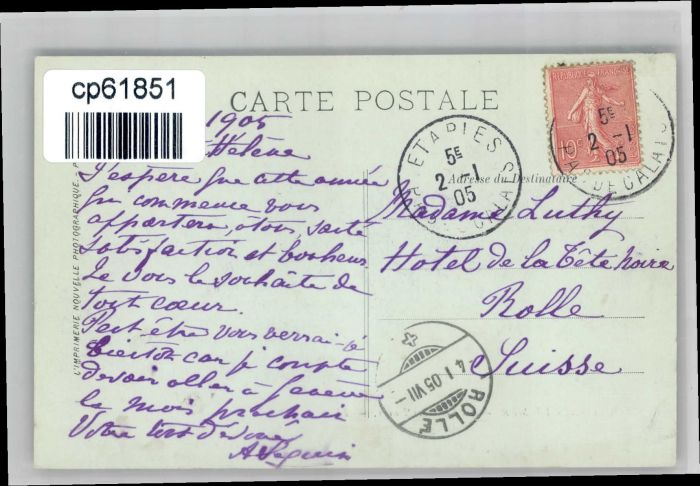 cp61851
CARTE POSTALE
1905
Hélène
J'espère que cette année
qui commence vous
apportera, à tous, santé
satisfaction et bonheur
Je vous le souhaite de
tout cœur.
Peut être vous verrai-je
bientôt car je compte
devoir aller à Genève
le mois prochain
Votre tout dévoué
A Seguin
ETAPLES
5E
2 -1
05
PAS-DE-CALAIS
REPUBLIQUE FRANÇAISE
10c
5E
2 -1
05
PAS-DE-CALAIS
Adresse du Destinataire
Madame Luthy
Hotel de la Tête noire
Rolle
Suisse
4 I 05 VII -
ROLLE
L'IMPRIMERIE NOUVELLE PHOTOGRAPHIQUE